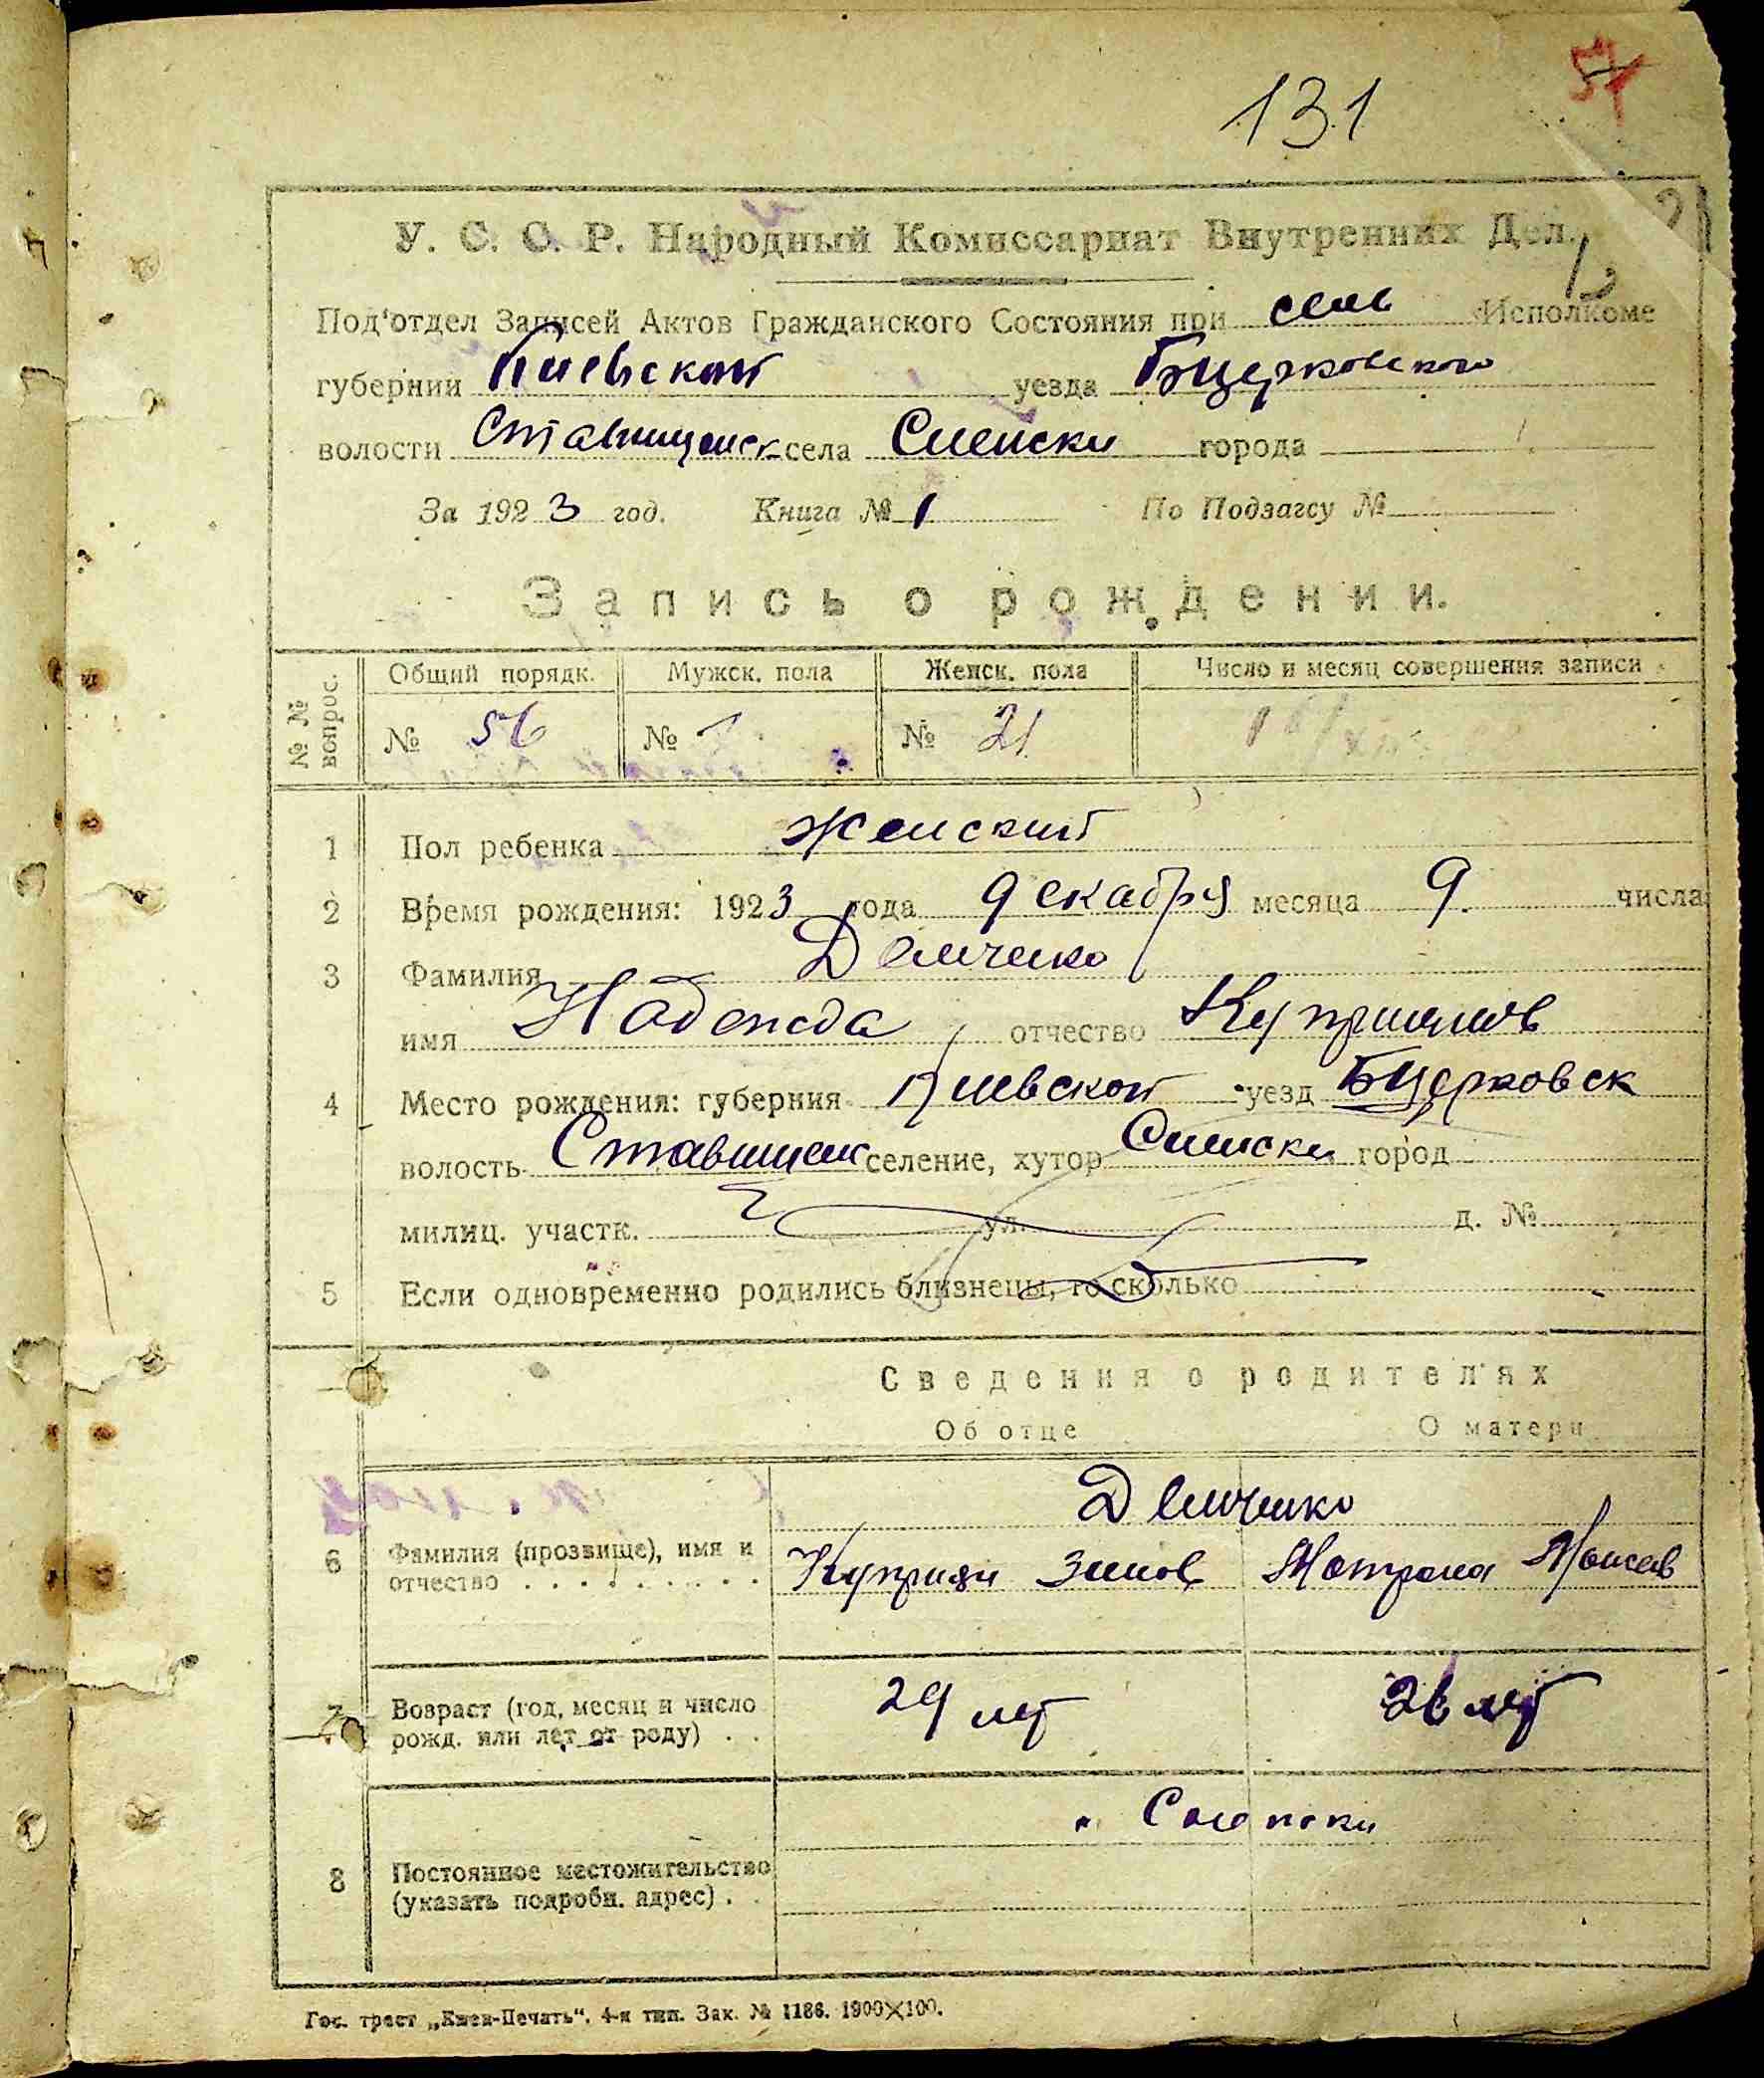 131
У. С. С. Р. Народный Комиссариат Внутренних Дел.
Под'отдел Записей Актов Гражданского Состояния при сель Исполкоме
губернии Киевской уезда Бцерковского
волости села города
За 1923 год. Книга № 1 По Подзагсу №
Запись о рождении.
№ № вопрос. Общий порядк. Мужск. пола Женск. пола Число и месяц совершения записи
№ 56 № № 21
1 Пол ребенка женский
2 Время рождения: 1923 года декабря месяца 9 числа
3 Фамилия Демченко
имя Надежда отчество Куприянов
4 Место рождения: губерния Киевской уезд Бцерковск
волость селение, хутор город
милиц. участк. ул. д. №
5 Если одновременно родились близнецы, то сколько
Сведения о родителях
Об отце О матери
Демченко
6 Фамилия (прозвище), имя и Куприян Зинов Мотрона Моисев
отчество . . . . . . . . .
7 Возраст (год, месяц и число 29 лет 26 лет
рожд. или лет от роду) . .
8 Постоянное местожительство
(указать подробн. адрес) . .
Гос. трест „Киев-Печать“. 4-я тип. Зак. № 1186. 1900×100.